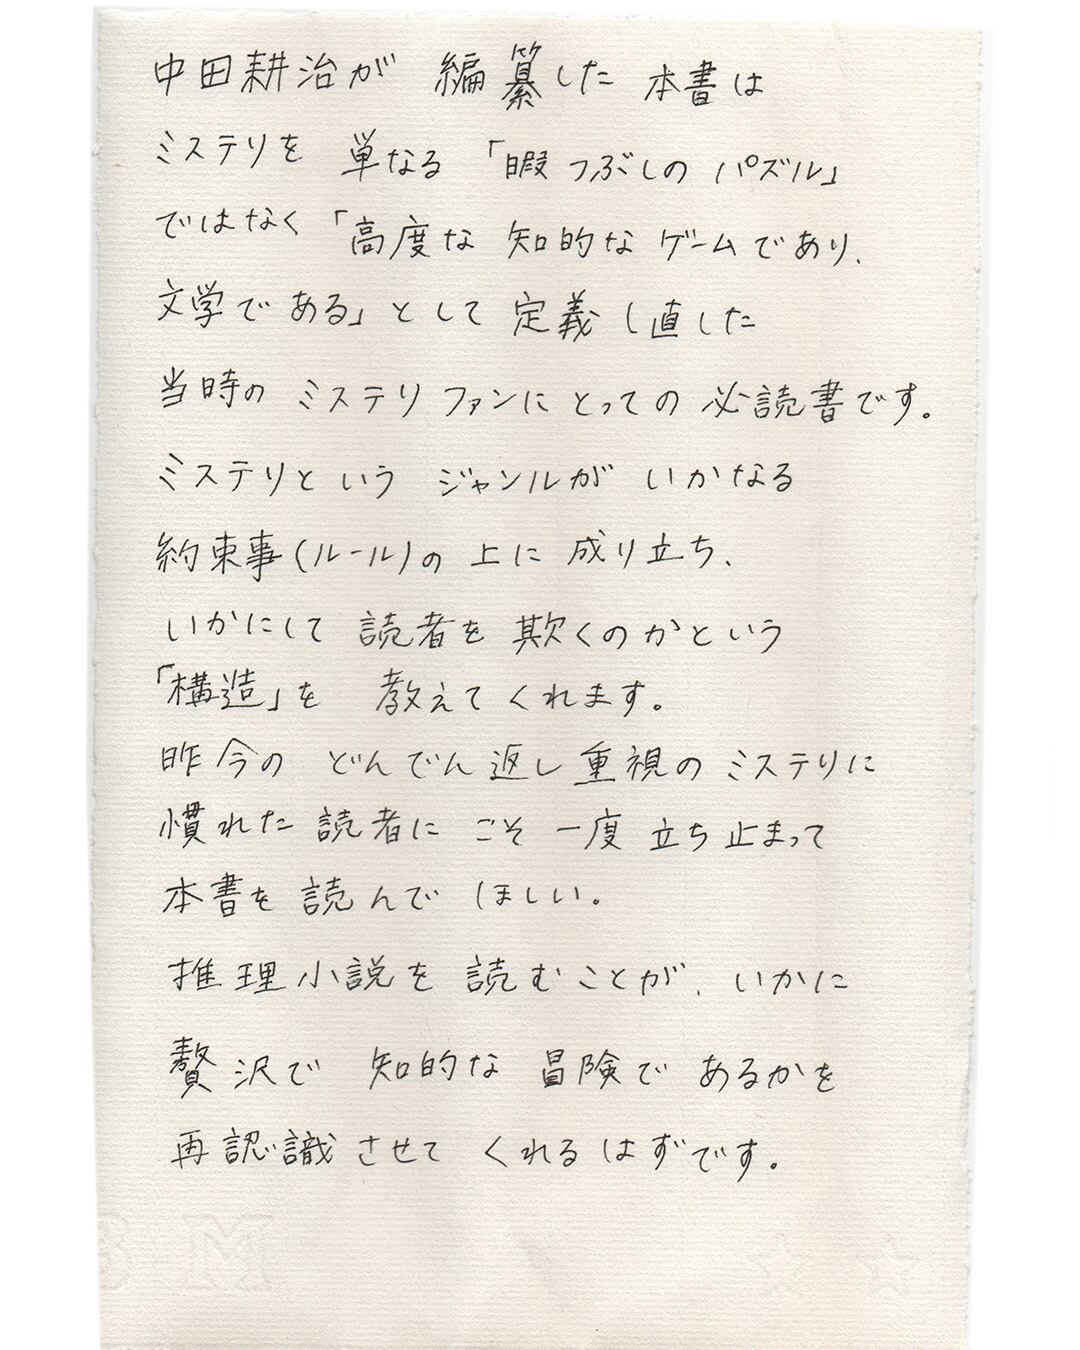 中田耕治が 編纂した 本書は
ミステリを 単なる「暇つぶしの パズル」
ではなく「高度な 知的な ゲームであり、
文学で ある」として 定義し直した
当時の ミステリ ファンに とっての 必読書です。
ミステリという ジャンルが いかなる
約束事(ルール)の 上に 成り立ち、
いかにして 読者を 欺くのかという
「構造」を 教えて くれます。
昨今の どんでん返し 重視の ミステリに
慣れた 読者に こそ 一度 立ち止まって
本書を 読んで ほしい。
推理小説を 読むことが、いかに
贅沢で 知的な 冒険で あるかを
再認識させて くれる はずです。
M